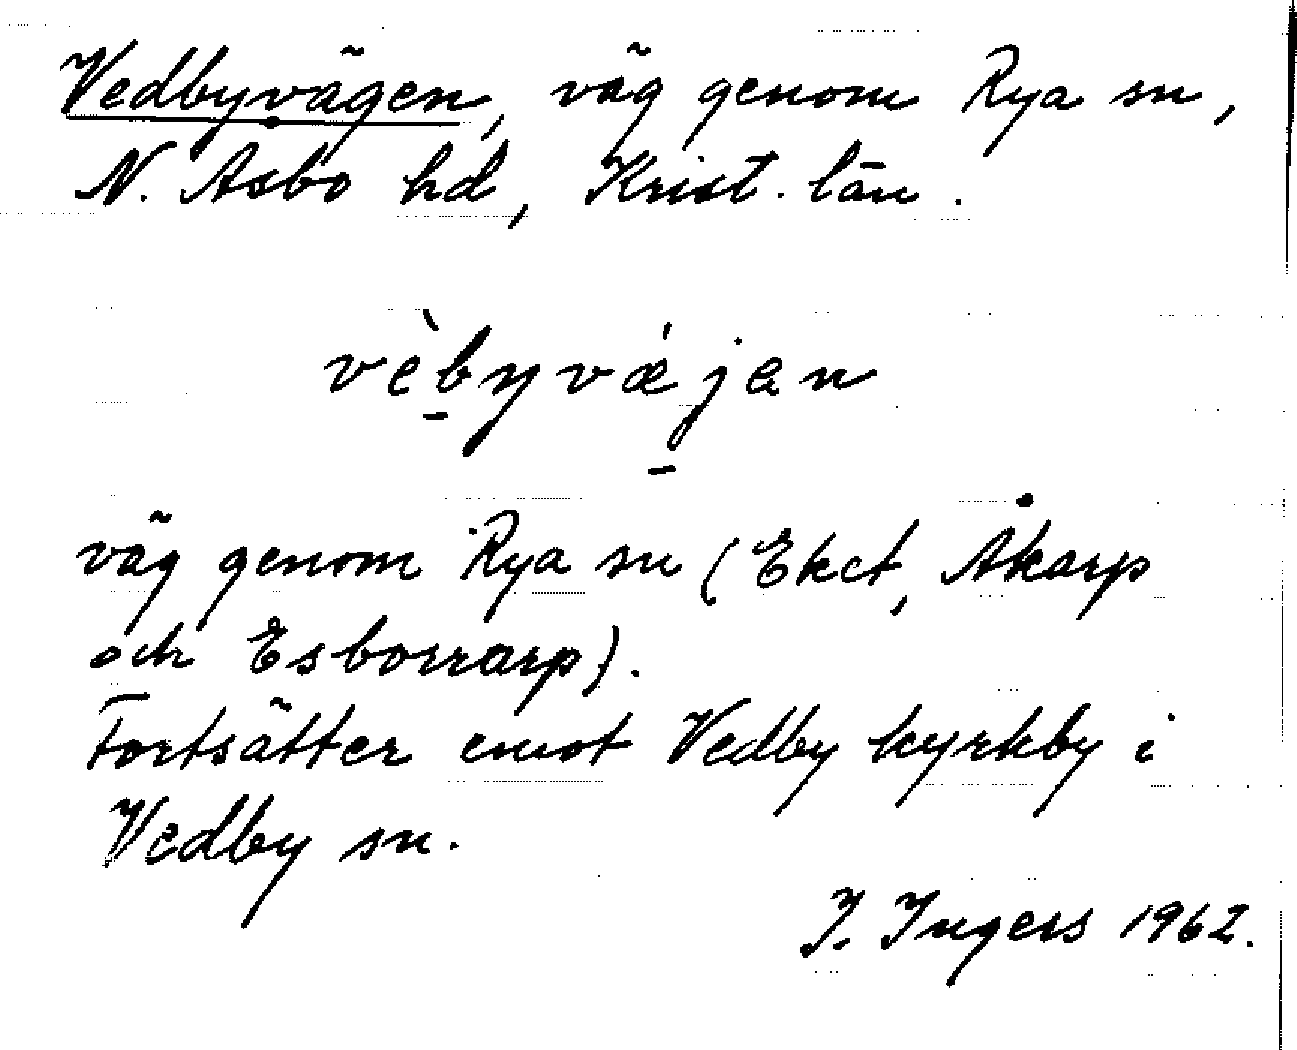 Vedbyvägen, väg genom Rya sn,
N. Åsbo hd, Krist. län.
vèbyvǽjen
väg genom Rya sn (Eket, Åkarp
och Esborrarp).
Fortsätter emot Vedby kyrkby i
Vedby sn.
I. Ingers 1962.